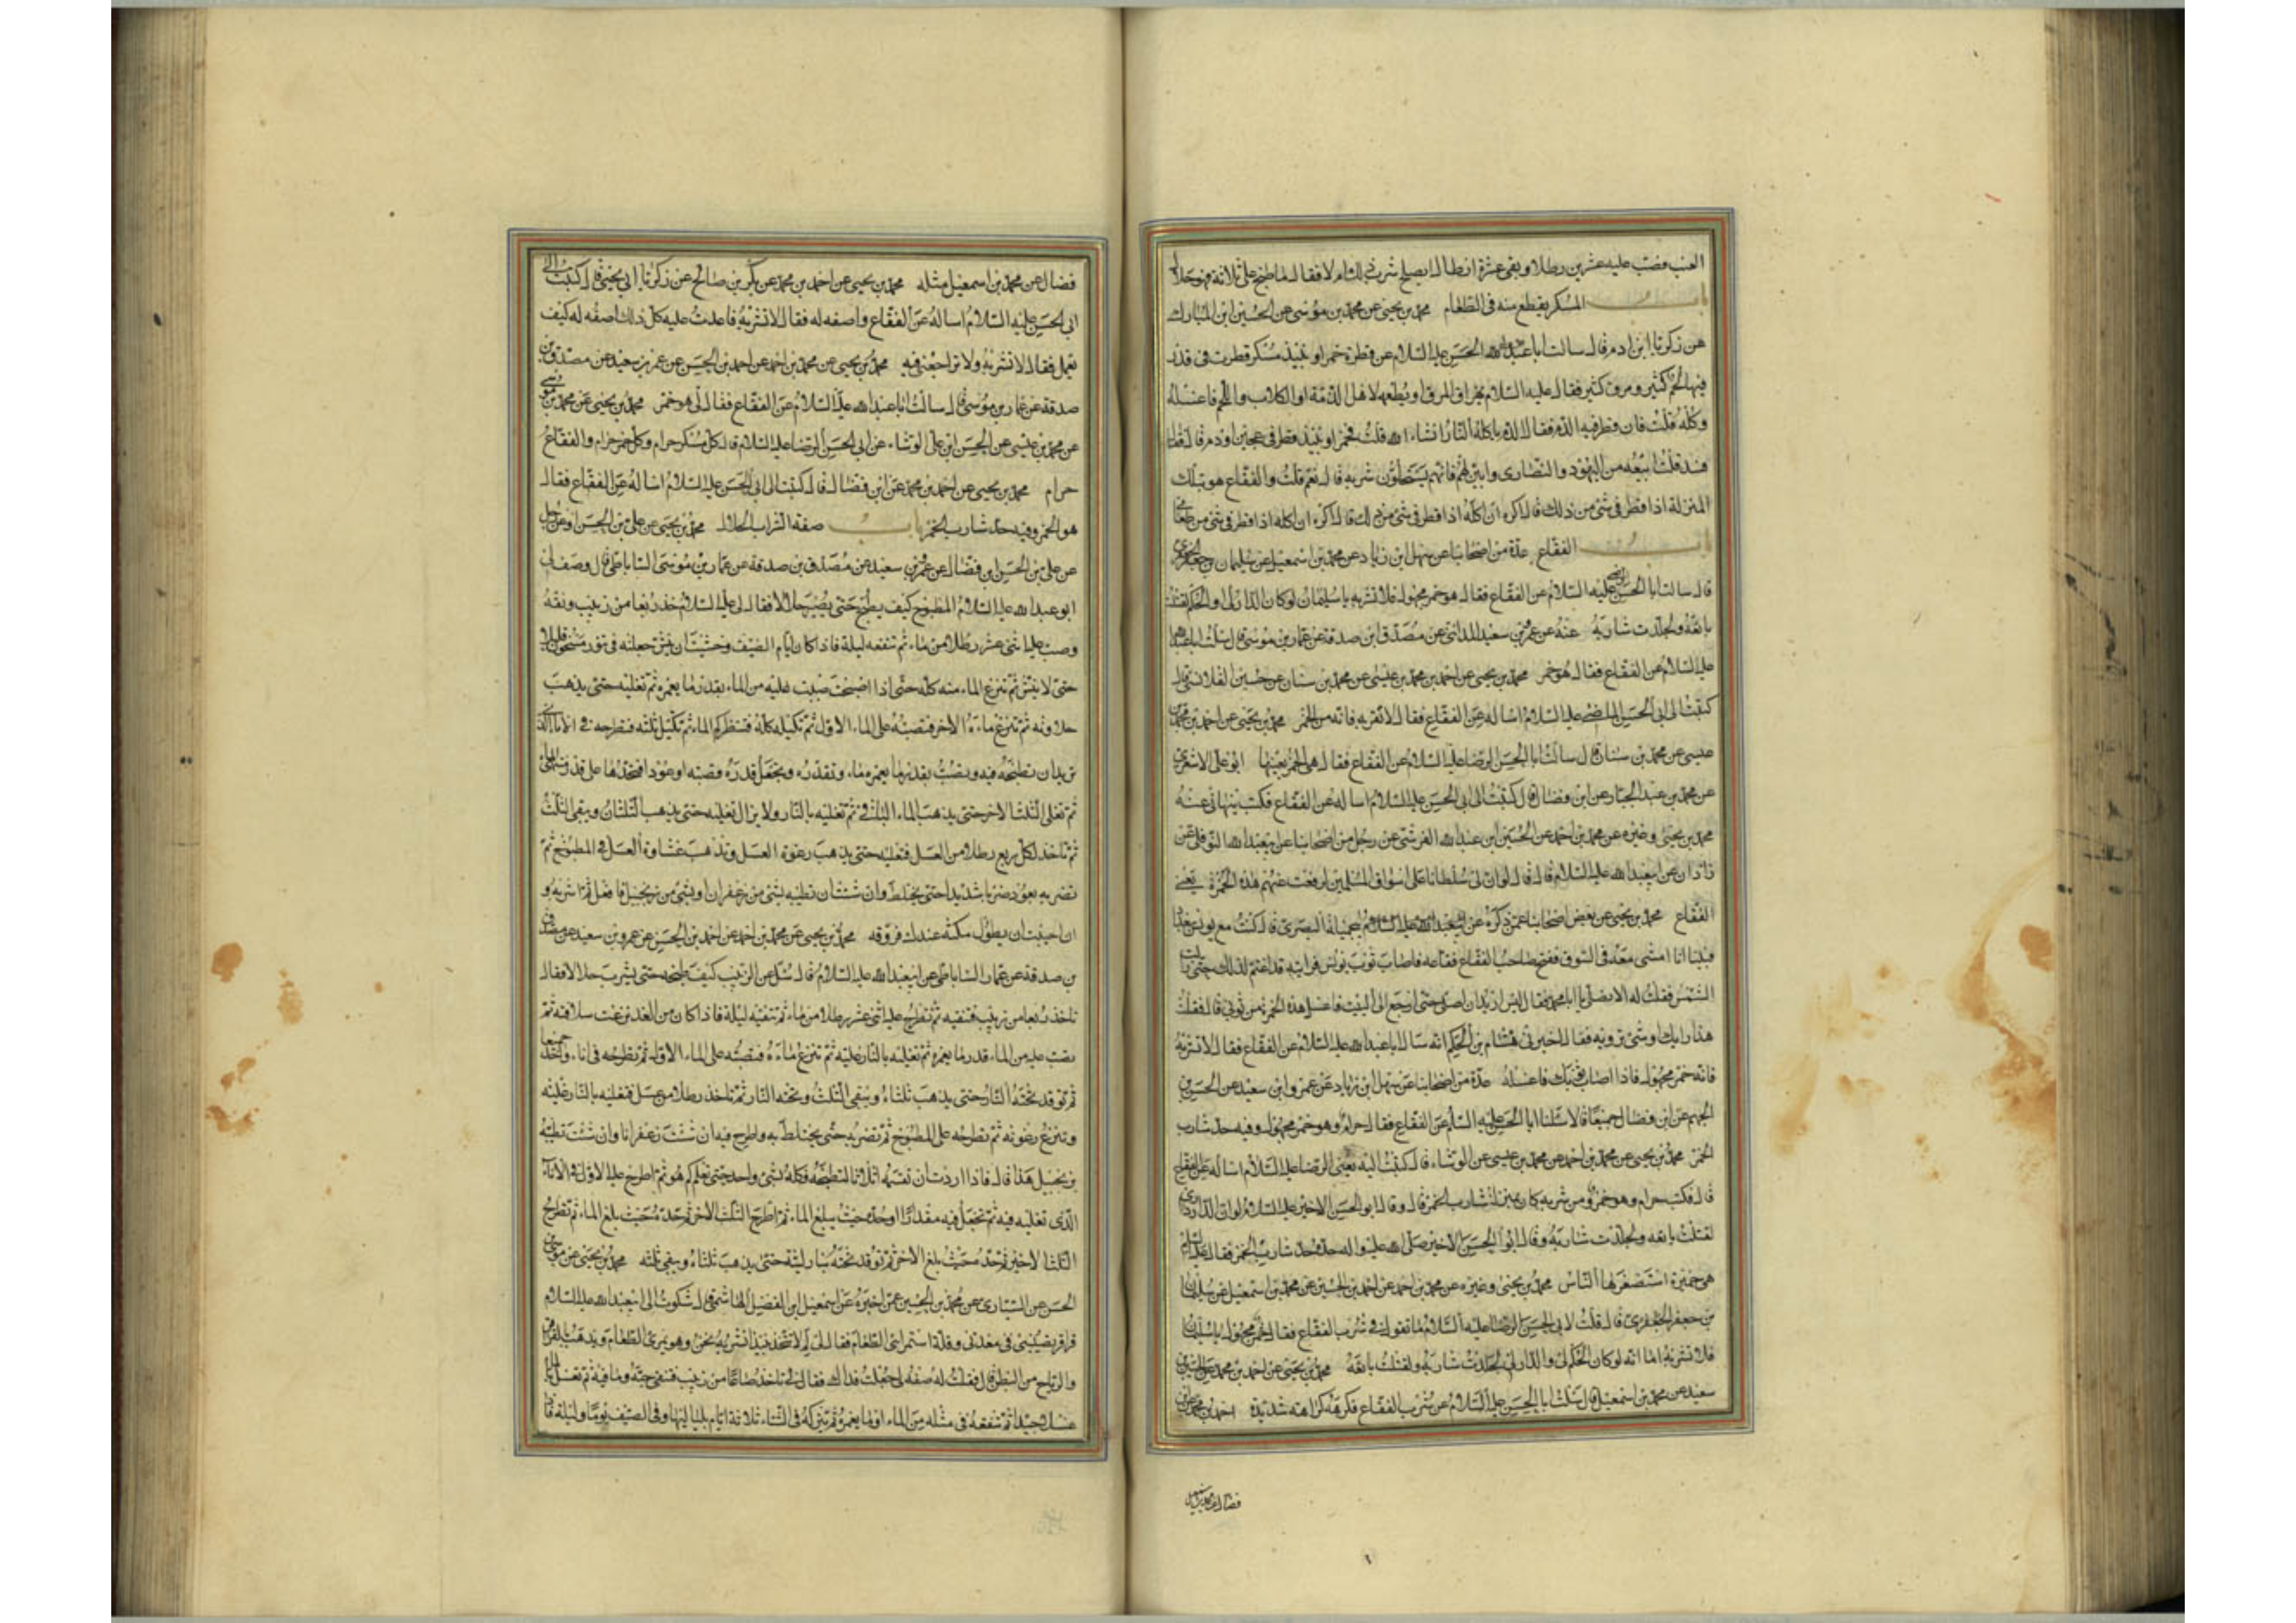 العنب فصب عليه عشرين رطلا و بقى عشرة ارطال ايصلح شرب ذلك ام لا فقال ما طبخ على ثلاثة فهو حلال
باب المسكر يقطر منه فى الطعام محمد بن يحيى عن محمد بن موسى عن الحسين ابن المبارك
عن زكريا ابن ادم قال سالت ابا الحسن عليه السلام عن قطرة خمر او نبيذ مسكر قطرت فى قدر
فيها لحم كثير ومرق كثير فقال عليه السلام يهراق المرق او يطعمه لاهل الذمة او الكلاب واللحم فاغسله
وكله قلت فان قطر فيها الدم فقال الدم ياكله النار انشاء الله قلت فخمر او نبيذ قطر فى عجين او دم قال فقال
فسد قلت ابيعه من اليهود والنصارى وابين لهم فانهم يستحلون شربه قال نعم قلت والفقاع هو بتلك
المنزلة اذا قطر فى شئ من ذلك قال اكره ان اكله اذا قطر فى شئ من طعامى
باب الفقاع عدة من اصحابنا عن سهل ابن زياد عن محمد بن اسمعيل عن سليمان بن جعفر الجعفرى
قال سالت ابا الحسن الرضا عليه السلام عن الفقاع فقال هو خمر مجهول فلا تشربه يا سليمان لو كان الدار لى او الحكم لقتلت
بائعه ولجلدت شاربه عنه عن عمرو بن سعيد المدائنى عن مصدق ابن صدقة عن عمار بن موسى قال سئلت ابا عبد الله
عليه السلام عن الفقاع فقال هو خمر محمد بن يحيى عن احمد بن محمد بن عيسى عن محمد بن سنان عن حسين القلانسى قال
كتبت الى ابى الحسن الماضى عليه السلام اساله عن الفقاع فقال لا تقربه فانه من الخمر محمد بن يحيى عن احمد بن محمد بن
عيسى عن محمد بن سنان قال سالت ابا الحسن الرضا عليه السلام عن الفقاع فقال هى الخمر بعينها ابو على الاشعرى
عن محمد بن عبد الجبار عن ابن فضال قال كتبت الى ابى الحسن عليه السلام اساله عن الفقاع فكتب ينهانى عنه
محمد بن يحيى وغيره عن محمد بن احمد عن الحسين ابن عبد الله القرشى عن رجل من اصحابنا عن ابى عبد الله النوفلى عن
زاذان عن ابى عبد الله عليه السلام قال قال لو ان لى سلطانا على اسواق المسلمين لرفعت عنهم هذه الخمرة يعنى
الفقاع محمد بن يحيى عن بعض اصحابنا عمن ذكره عن ابى جميلة البصرى قال كنت مع يونس ببغداد
فبينا انا امشى معه فى السوق ففتح صاحب الفقاع فقاعه فاصاب ثوب يونس فرايته قد اغتم لذلك حتى زالت
الشمس فقلت له الا تصلى يا ابا محمد فقال ليس اريد ان اصلى حتى ارجع الى البيت فاغسل هذه الخمر من ثوبى قال فقلت
هذا رايك او شئ ترويه فقال اخبرنى هشام بن الحكم انه سال ابا عبد الله عليه السلام عن الفقاع فقال لا تشربه
فانه خمر مجهول فاذا اصاب ثوبك فاغسله عدة من اصحابنا عن سهل ابن زياد عن عمرو ابن سعيد عن الحسن بن
الجهم عن ابن فضال جميعا قالا سئلنا ابا الحسن عليه السلام عن الفقاع فقال حرام وهو خمر مجهول وفيه حد شارب
الخمر محمد بن يحيى عن محمد بن احمد عن محمد بن عيسى عن الوشاء قال كتبت اليه يعنى الرضا عليه السلام اساله عن الفقاع
قال فكتب حرام وهو خمر ومن شربه كان بمنزلة شارب الخمر قال وقال ابو الحسن الاخير عليه السلام لو ان الدار دارى
لقتلت بائعه ولجلدت شاربه وقال ابو الحسن الاخير صلى الله عليه واله حده حد شارب الخمر فقال عليه السلام
هى خميرة استصغرها الناس محمد بن يحيى وغيره عن محمد بن احمد عن احمد بن الحسين عن محمد بن اسمعيل عن سليمان
بن جعفر الجعفرى قال قلت لابى الحسن الرضا عليه السلام ما تقول فى شرب الفقاع فقال خمر مجهول يا سليمان
فلا تشربه اما انه لو كان الحكم لى والدار لى لجلدت شاربه ولقتلت بائعه محمد بن يحيى عن احمد بن محمد عن الحسين بن
سعيد عن محمد بن اسمعيل قال سئلت ابا الحسن عليه السلام عن شرب الفقاع فكرهه كراهته شديدة احمد بن محمد عن ابن
فضال عن محمد بن اسمعيل
فضال عن محمد بن اسمعيل مثله محمد بن يحيى عن احمد بن محمد عن بكر بن صالح عن زكريا ابى يحيى قال كتبت الى
ابى الحسن عليه السلام اساله عن الفقاع واصفه له فقال لا تشربه فاعدت عليه كل ذلك اصفه له كيف
يعمل فقال لا تشربه ولا تراجعنى فيه محمد بن يحيى عن محمد بن احمد عن احمد بن الحسن عن عمرو بن سعيد عن مصدق بن
صدقة عن عمار بن موسى قال سالت ابا عبد الله عليه السلام عن الفقاع فقال لى هو خمر محمد بن يحيى عن محمد بن موسى
عن محمد بن عيسى عن الحسن ابن على الوشاء عن ابى الحسن الرضا عليه السلام قال كل مسكر حرام وكل خمر حرام والفقاع
حرام محمد بن يحيى عن احمد بن محمد عن ابن فضال قال كتبت الى ابى الحسن عليه السلام اساله عن الفقاع فقال
هو الخمر وفيه حد شارب الخمر باب صفة الشراب الحلال محمد بن يحيى عن على بن الحسن او عن رجل
عن على بن الحسن ابن فضال عن عمرو بن سعيد عن مصدق بن صدقة عن عمار بن موسى الساباطى قال وصف لى
ابو عبد الله عليه السلام المطبوخ كيف يطبخ حتى يصير حلالا فقال لى عليه السلام خذ ربعا من زبيب ونقه
وصب عليه اثنى عشر رطلا من ماء ثم تنقعه ليلة فاذا كان ايام الصيف وخشيت ان ينش جعلته فى تنور مسخون قليلا
حتى لا ينش ثم تنزع الماء منه كله حتى اذا اصبحت صببت عليه من الماء بقدر ما يغمره ثم تغليه حتى يذهب
حلاوته ثم تنزع ماءه الاخر فتصبه على الماء الاول ثم تكيله كله فتنظر كم الماء ثم تكيل ثلثه فتطرحه فى الاناء الذى
تريد ان تطبخه فيه وتصب بقدر ما يغمره ماء وتقدره وتجعل قدره قصبه او عودا فتحدها على قدر منتهى الماء
ثم تغلى الثلث الاخر حتى يذهب الماء الباقى ثم تغليه بالنار ولا يزال تغليه حتى يذهب الثلثان ويبقى الثلث
ثم تاخذ لكل ربع رطلا من العسل فتغليه حتى يذهب رغوة العسل وتذهب غشاوة العسل فى المطبوخ ثم
تضربه بعود ضربا شديدا حتى يختلط وان شئت ان تطيبه بشئ من زعفران او بشئ من زنجبيل فافعل ثم اشربه و
ان احببت ان يطول مكثه عندك فروقه محمد بن يحيى عن محمد بن احمد عن احمد بن الحسن عن عمرو بن سعيد عن مصدق
بن صدقة عن عمار الساباطى عن ابى عبد الله عليه السلام قال سئل عن الزبيب كيف طبخه حتى يشرب حلالا فقال
تاخذ ربعا من زبيب فتنقيه ثم تطرح عليه اثنى عشر رطلا من ماء ثم تنقعه ليلة فاذا كان من الغد نزعت سلافته ثم
تصب عليه من الماء قدر ما يغمره ثم تغليه بالنار غليه ثم تنزع ماءه فتصبه على الماء الاول ثم تطرحه فى اناء واحد جميعا
ثم توقد تحته النار حتى يذهب ثلثاه ويبقى الثلث وتحته النار ثم تاخذ رطلا من عسل فتغليه بالنار غلية
وتنزع رغوته ثم تطرحه على المطبوخ ثم تضربه حتى يختلط به واطرح فيه ان شئت زعفرانا وان شئت تطيبه
بزنجبيل هذا قال فاذا اردت ان تقسمه اثلاثا لتطبخه فكله بشئ واحد حتى تعلم كم هو ثم اطرح عليه الاول فى الاناء
الذى تغليه فيه ثم تجعل فيه مقدارا وحده حيث يبلغ الماء ثم اطرح الثلث الاخر ثم حده حيث بلغ الماء ثم تطرح
الثلث الاخير ثم حده حيث بلغ الاخر ثم توقد تحته بنار لينة حتى يذهب ثلثاه ويبقى ثلثه محمد بن يحيى عن موسى بن
الحسن عن السيارى عن محمد بن الحسين عمن اخبره عن اسمعيل ابن الفضل الهاشمى قال شكوت الى ابى عبد الله عليه السلام
قراقر يصيبنى فى معدتى وقلة استمرائى الطعام فقال لى لم لا تتخذ نبيذا نشربه نحن وهو يمرئ الطعام ويذهب بالقراقر
والرياح من البطن قال فقلت له صفه لى جعلت فداك فقال لى تاخذ صاعا من زبيب فتنقى حبه وما فيه ثم تغسل بالماء
غسلا جيدا ثم تنقعه فى مثله من الماء او ما يغمره ثم تتركه فى الشتاء ثلاثة ايام بلياليها وفى الصيف يوما وليلة فاذا